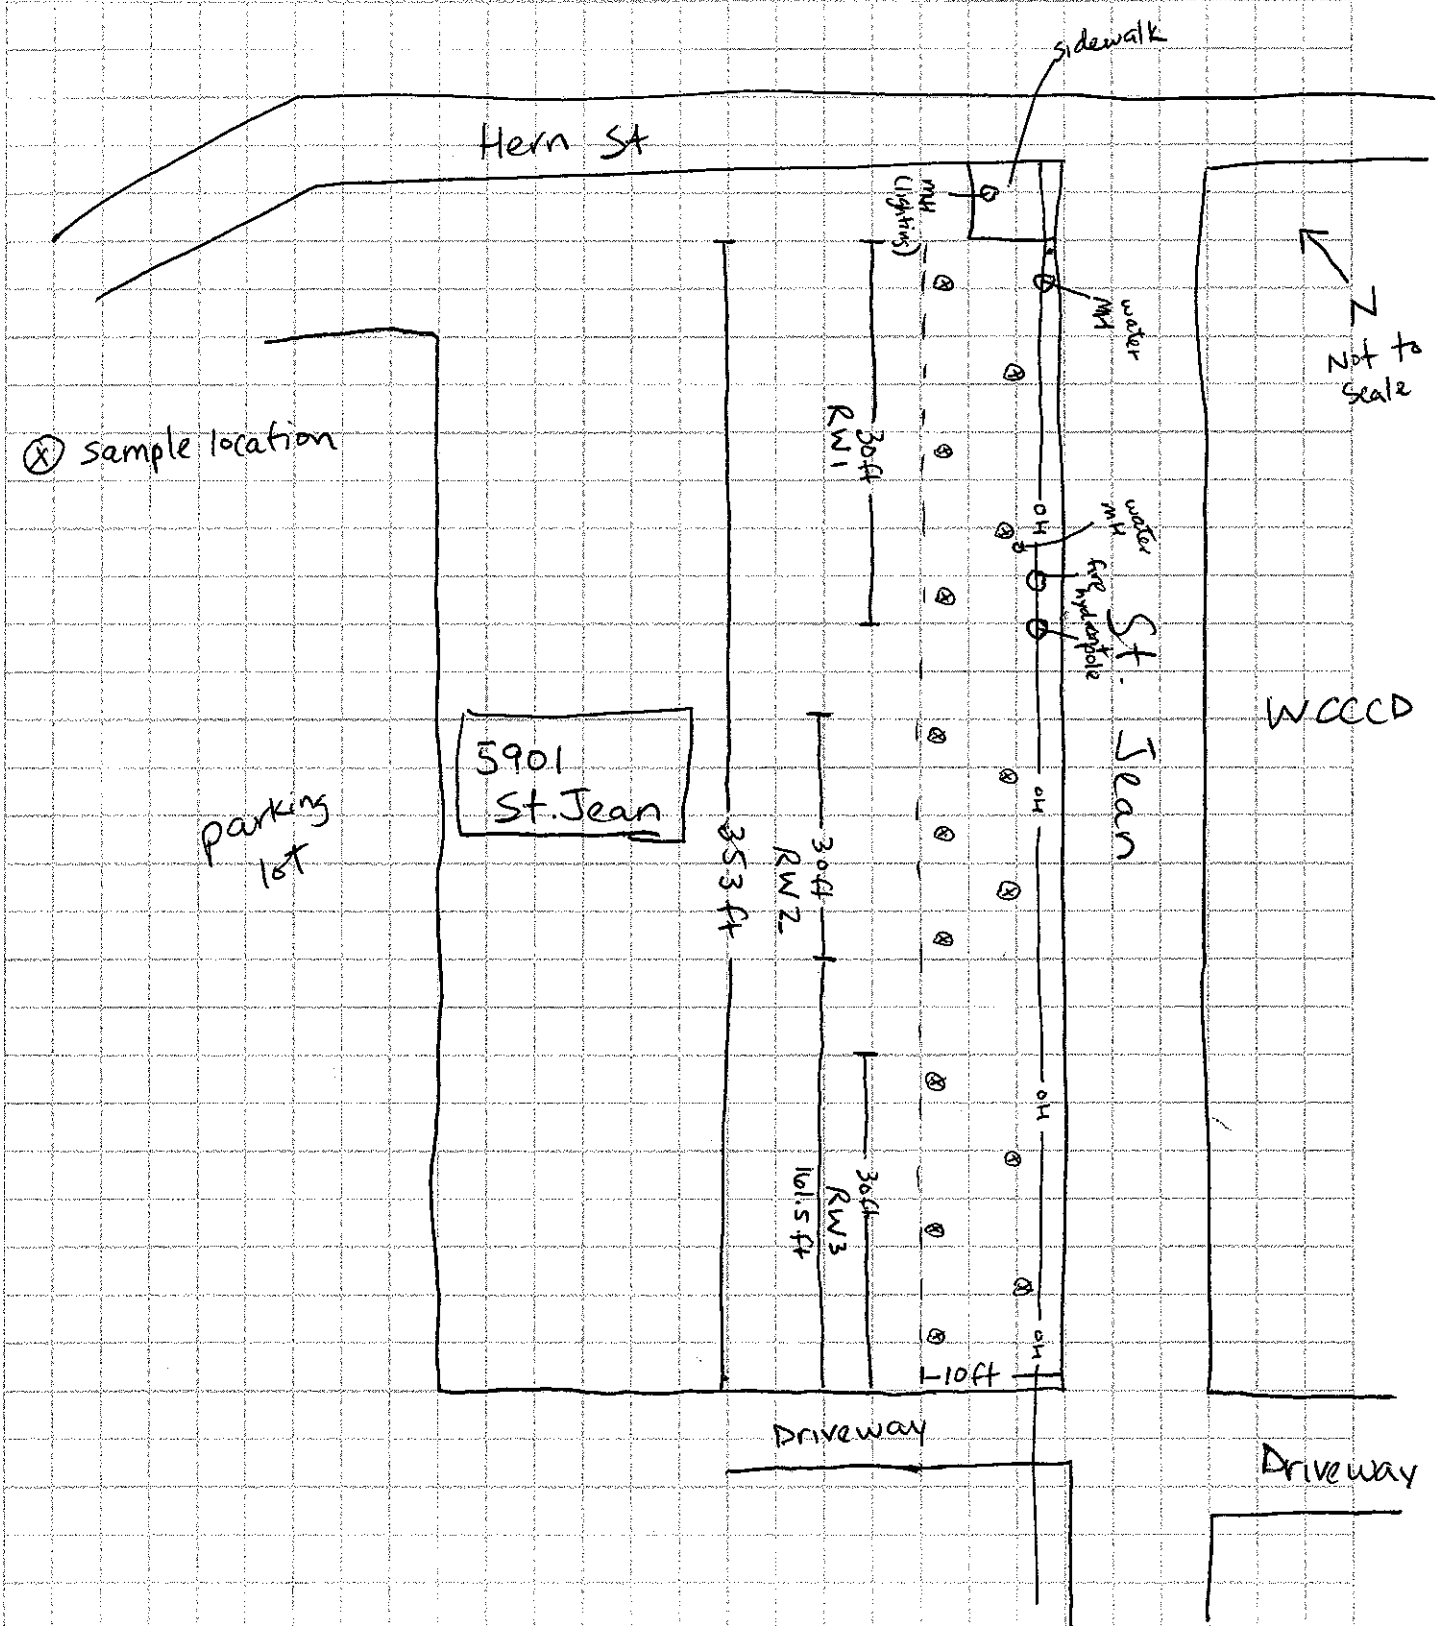 sidewalk
Hern St
MH
(lighting)
water
MH
N
Not to
scale
ⓧ sample location
30ft
RW1
OH
water
MH
fire
hydrant
pole
St. Jean
WCCCD
5901
St. Jean
parking
lot
353 ft
30ft
RW2
OH
OH
30ft
RW3
161.5 ft
OH
10ft
Driveway
Driveway